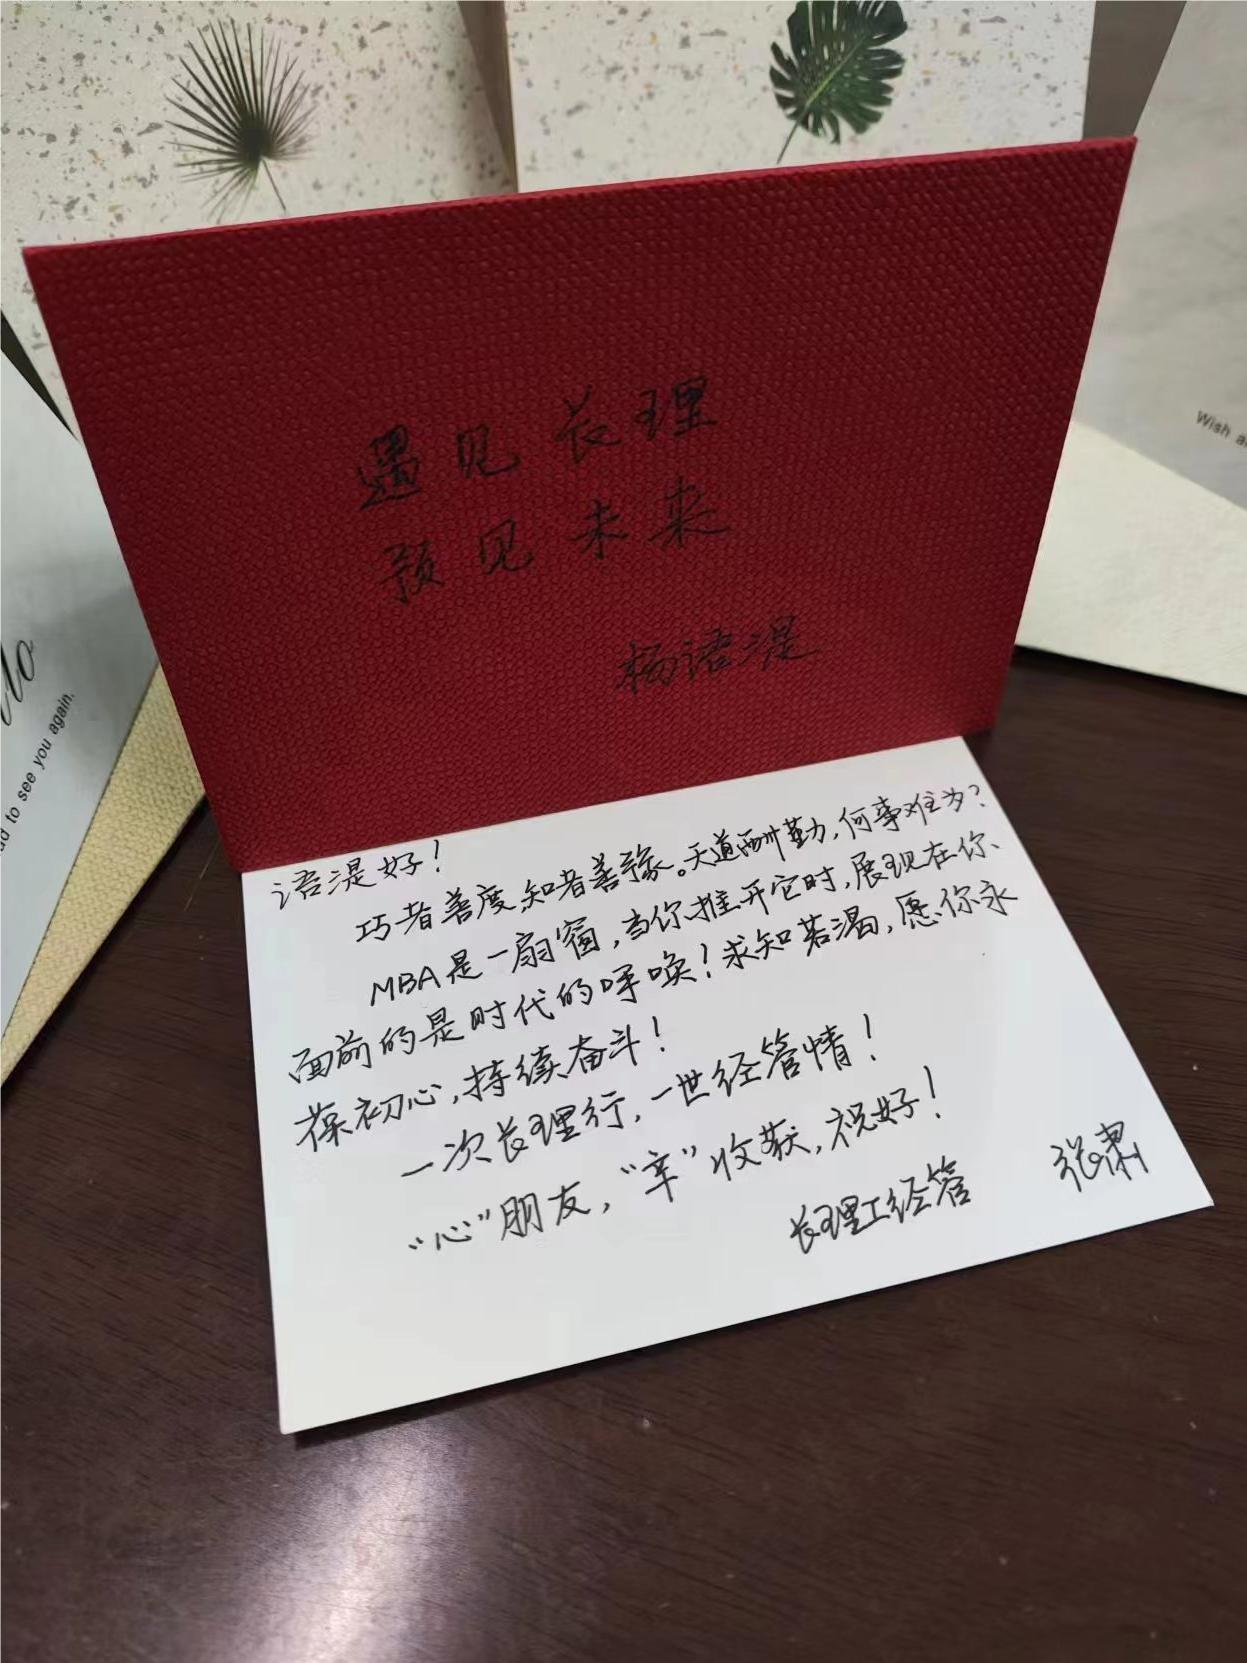 遇见长理
预见未来
杨语湜
语湜好!
巧者善度,知者善豫。天道酬勤,何事难为?
MBA是一扇窗,当你推开它时,展现在你
面前的是时代的呼唤!求知若渴,愿你永
葆初心,持续奋斗!
一次长理行,一世经管情!
“心”朋友,“辛”收获,祝好!
长理工经管 张肃
to see you again.
Wish